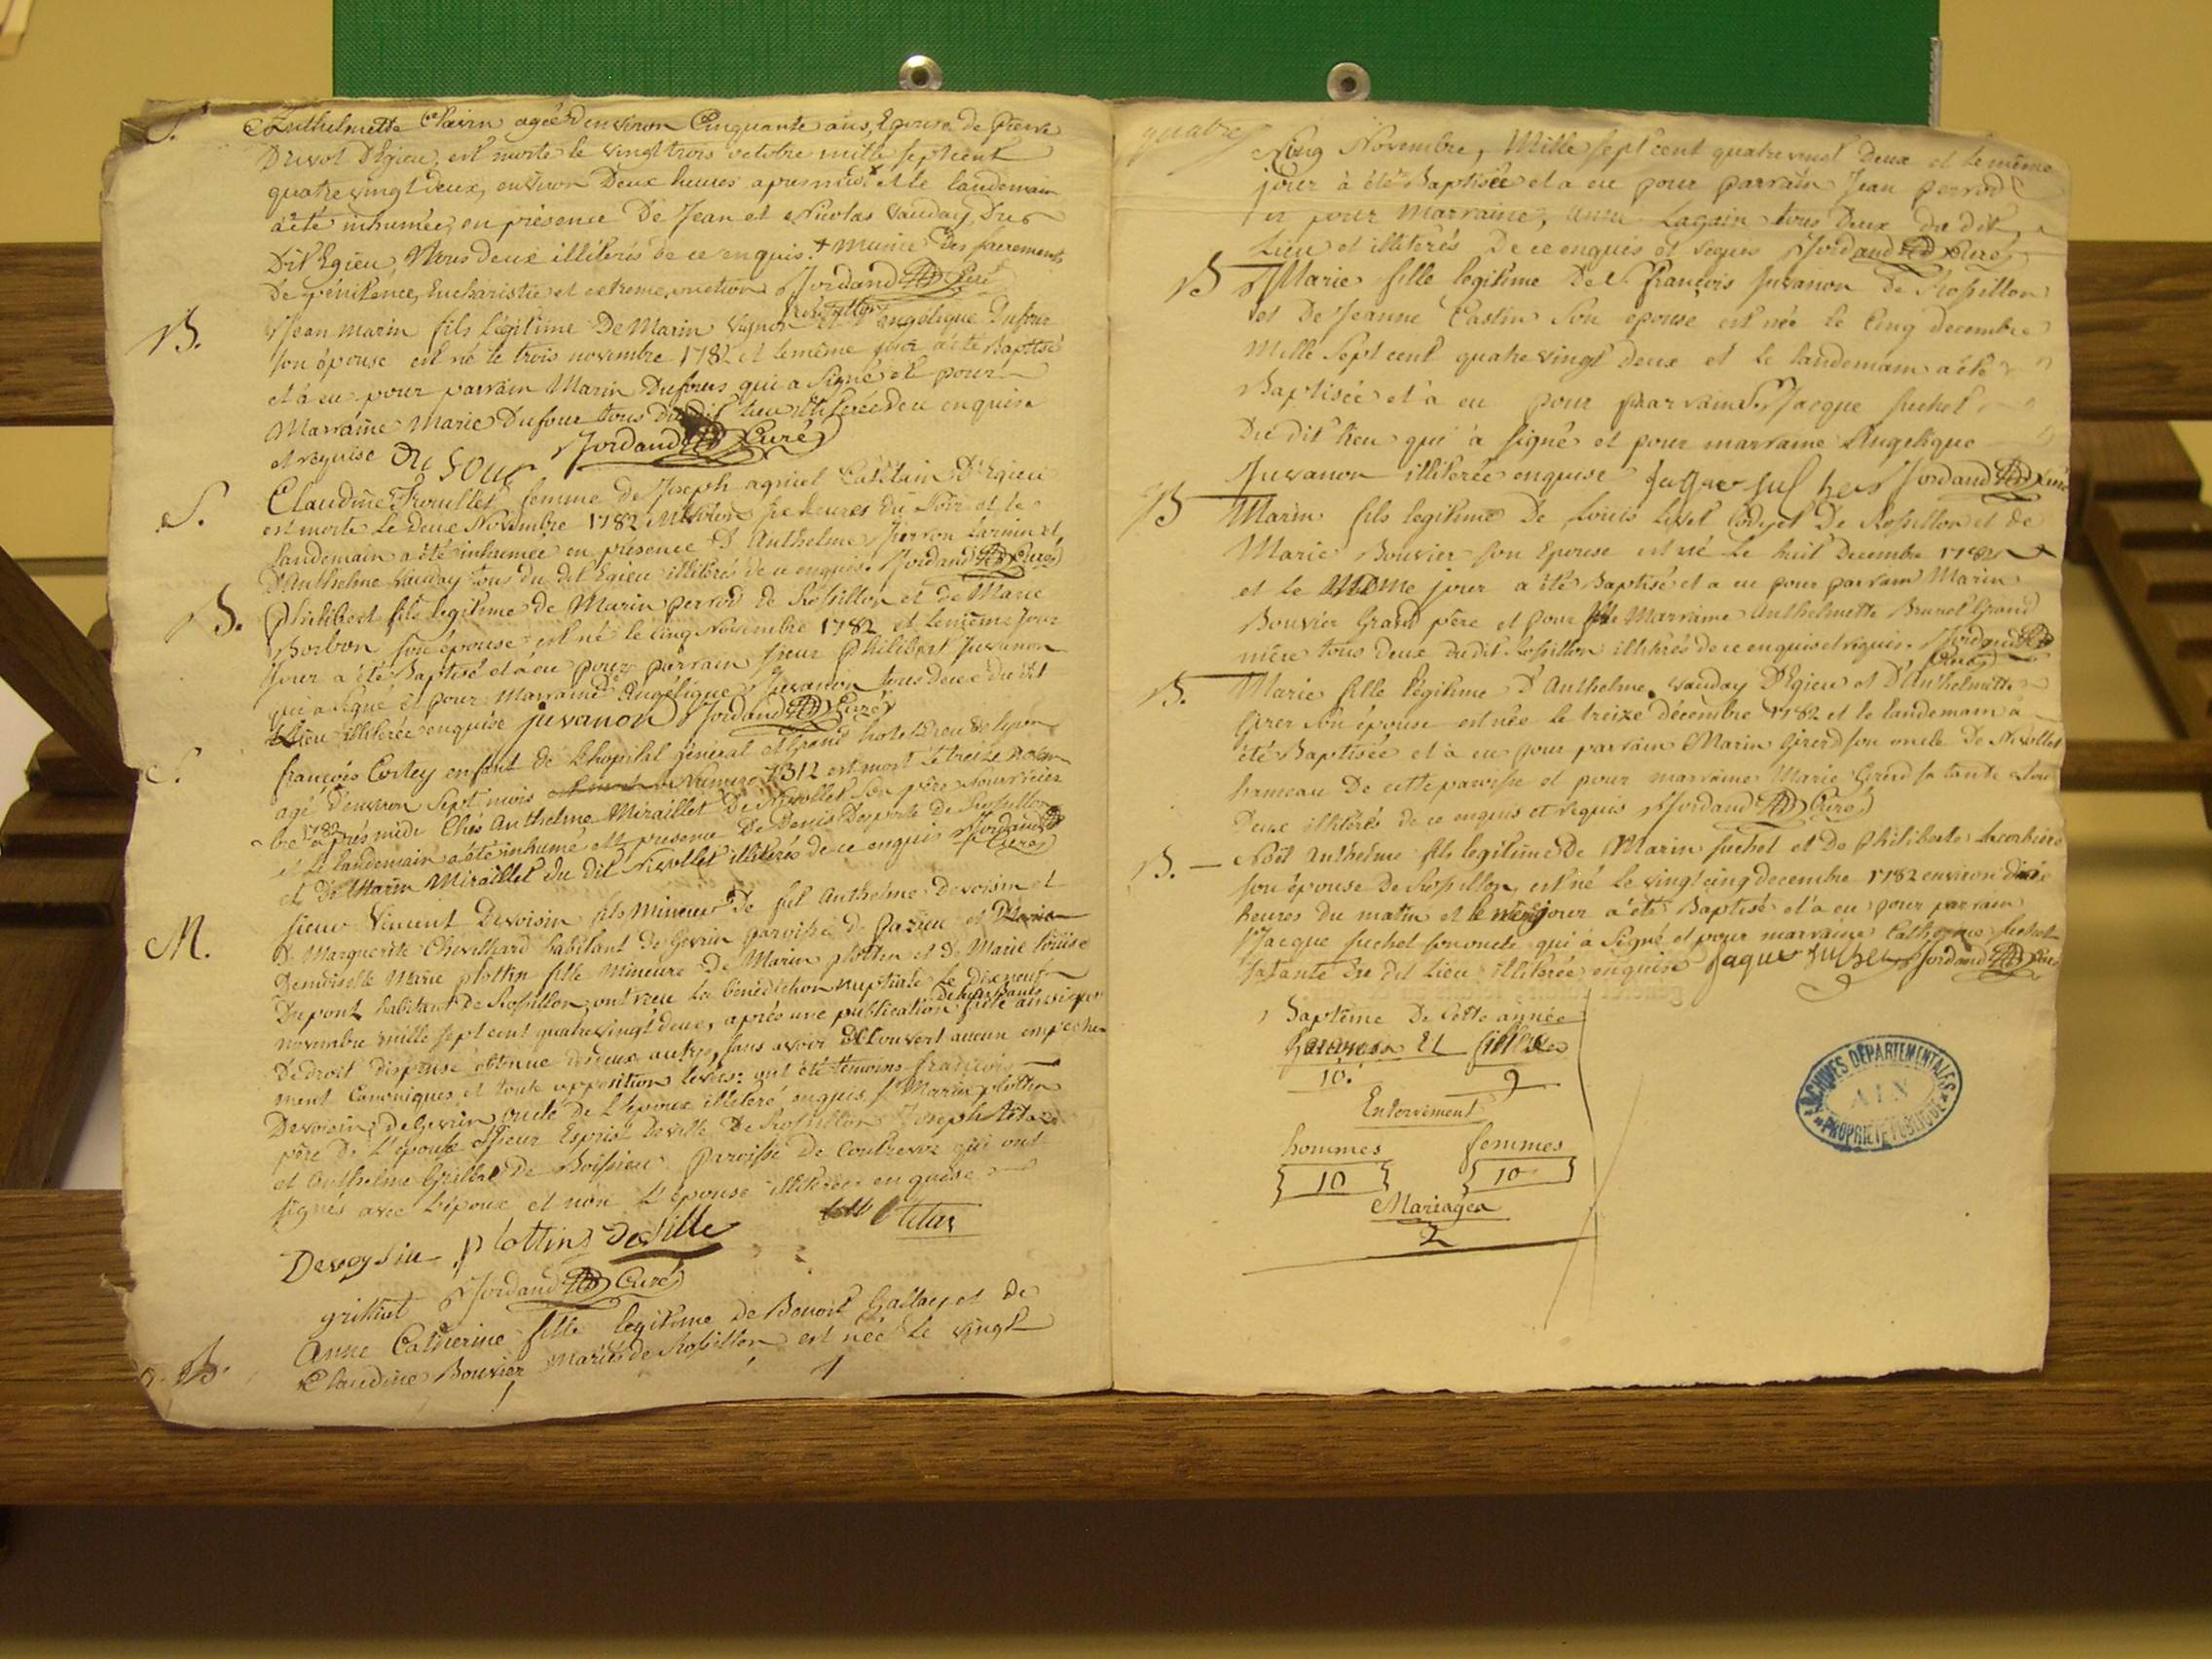 S.
Anthelmette Clavin agée d'environ Cinquante ans, Epouse de Pierre
Druvot D'Egieu, est morte le vingt trois octobre mille sept cent
quatre vingt deux, environ Deux heures apres midi et le landemain
a été inhumée, en présence De Jean et Nicolas Vauday, Du
Dit Egieu, tous deux illitérés de ce enquis. + munie des sacrements
De pénitence, Eucharistie et extreme onction Jordand Curé
B.
Jean marin fils légitime De Marin Vignon et Angelique Dufour
son épouse est né le trois novembre 1782 et le même jour a été Baptisé
et à eu pour parrain Marin Dufour qui a Signé et pour
Marraine Marie Dufour tous du dit lieu illiterée de ce enquise
et requise Du four Jordand Curé
S.
Claudine femme de Joseph agniel D'Egieu
est morte Le deux Novembre 1782 environ six heures du Soir et le
landemain a été inhumée en présence D'Anthelme et
D'Anthelme Vauday tous du dit Egieu illiterés de ce enquis. Jordand Curé
B.
Philibert fils legitime de Marin perrod de Rossillon et de Marie
Borbon son épouse est né le cinq Novembre 1782 et le même jour
jour a été Baptisé et a eu pour parrain sieur Philibert Juvanon
qui a signé et pour Marraine Angélique Juvanon tous deux du dit
Lieu illiterée enquise juvanon Jordand Curé
S.
françois Cortey enfant de L'hopital général et Grand hotel Dieu de Lyon
agé d'environ Sept mois Numero 7312 est mort le treize novem
bre 1782 après midi Chés Anthelme Miraillet De Nivollet Son père nourricier
et le landemain a été inhumé en presence De Denis Desporte de Rossillon
et De Marin Miraillet du dit Nivollet illiterés de ce enquis Jordand Curé
M.
sieur Vincent Devoisin fils Mineur De feu Anthelme Devoisin et
De Marguerite Chevilliard habitant de Gevrin paroisse de et
Demoiselle Marie plottin fille Mineure De Marin plottin et de Marie Louise
Dupont habitant de Rossillon, ont reçu la bénédiction nuptiale Le Dixneuf
novembre mille sept cent quatre vingt deux, après une publication faite
De droit dispense obtenue des deux autres, sans avoir découvert aucun empeche
ment Canoniques et toute opposition levées: ont été témoins françois
Devoisin, de Gevrin, oncle de L'époux illiteré enquis, s.r Marin plottin
père De L'épouse Sieur Esprit Deville De Rossillon Joseph Tétaz
et Anthelme Grillet de Boissieu paroisse de Contrevoz qui ont
signés avec L'époux et non L'épouse illiterée enquise
Devoysin plottin Deville tétaz
grilliet Jordand Curé
B.
Anne Catherine fille legitime de Benoit Gallay et de
Claudine Bouvier Mariés de Rossillon est née Le vingt
quatre
Cinq Novembre, Mille sept cent quatre vingt Deux et le même
jour à été Baptisée et a eu pour parrain Jean perrod
et pour Marraine, Anne Lagain tous Deux du dit
Lieu et illiterés De ce enquis et requis Jordand Curé
B
Marie fille legitime De S.r françois Juvanon de Rossillon
et De Jeanne Castin Son épouse est née Le Cinq decembre
Mille Sept cent quatre vingt Deux et le landemain a été
Baptisée et a eu pour parrain S.r Jacque suchet
Du dit lieu qui à signé et pour marraine Angelique
Juvanon illiterée enquise Jaque suchet Jordand Curé
B
Marin fils legitime De Louis De Rossillon et de
Marie Bouvier son Epouse est né Le huit Decembre 1782
et le Même jour a été Baptisé et a eu pour parrain Marin
Bouvier Grand père et pour Marraine Anthelmette Brunet Grand
mère tous deux du dit Rossillon illiterés de ce enquis et requis. Jordand
Curé
B.
Marie fille légitime D'Anthelme Vauday D'Egieu et D'Anthelmette
Girer Son épouse est née Le treize décembre 1782 et le landemain a
été Baptisée et à eu pour parrain Marin Girerd son oncle De Nivollet
hameau De cette paroisse et pour marraine Marie Girerd sa tante tous
Deux illiterés de ce enquis et requis Jordand Curé
B.
Noël Anthelme fils legitime De Marin suchet et De Philiberte Lacorbiere
son épouse De Rossillon, est né Le vingt cinq decembre 1782 environ dix
heures du matin et le même jour a été Baptisé et a eu pour parrain
S.r Jacque suchet son oncle qui à Signé et pour marraine Catherine suchet
sa tante Du dit Lieu illiterée enquise Jaque suchet Jordand Curé
Baptême De Cette année
Garçons 11 filles
10. 9
Enterrement
hommes femmes
10 10
Mariages
2
ARCHIVES DÉPARTEMENTALES
AIN
PROPRIÉTÉ PUBLIQUE